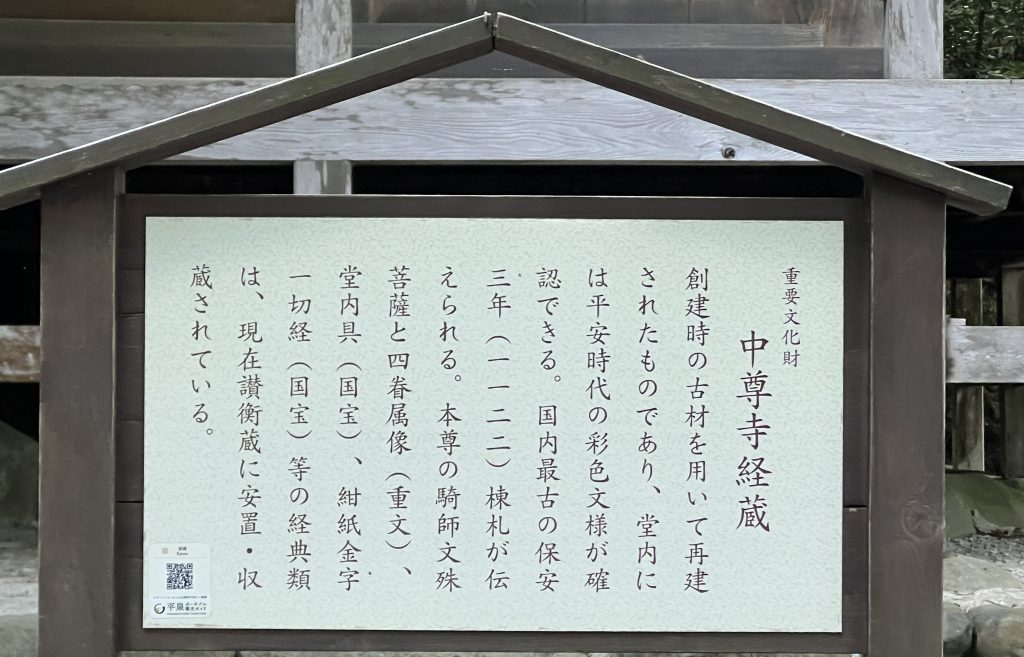 重要文化財
中尊寺経蔵
創建時の古材を用いて再建
されたものであり、堂内に
は平安時代の彩色文様が確
認できる。国内最古の保安
三年（一一二二）棟札が伝
えられる。本尊の騎師文殊
菩薩と四眷属像（重文）、
堂内具（国宝）、紺紙金字
一切経（国宝）等の経典類
は、現在讃衡蔵に安置・収
蔵されている。
経蔵
Kyozo
平泉ポータブル
観光ガイド